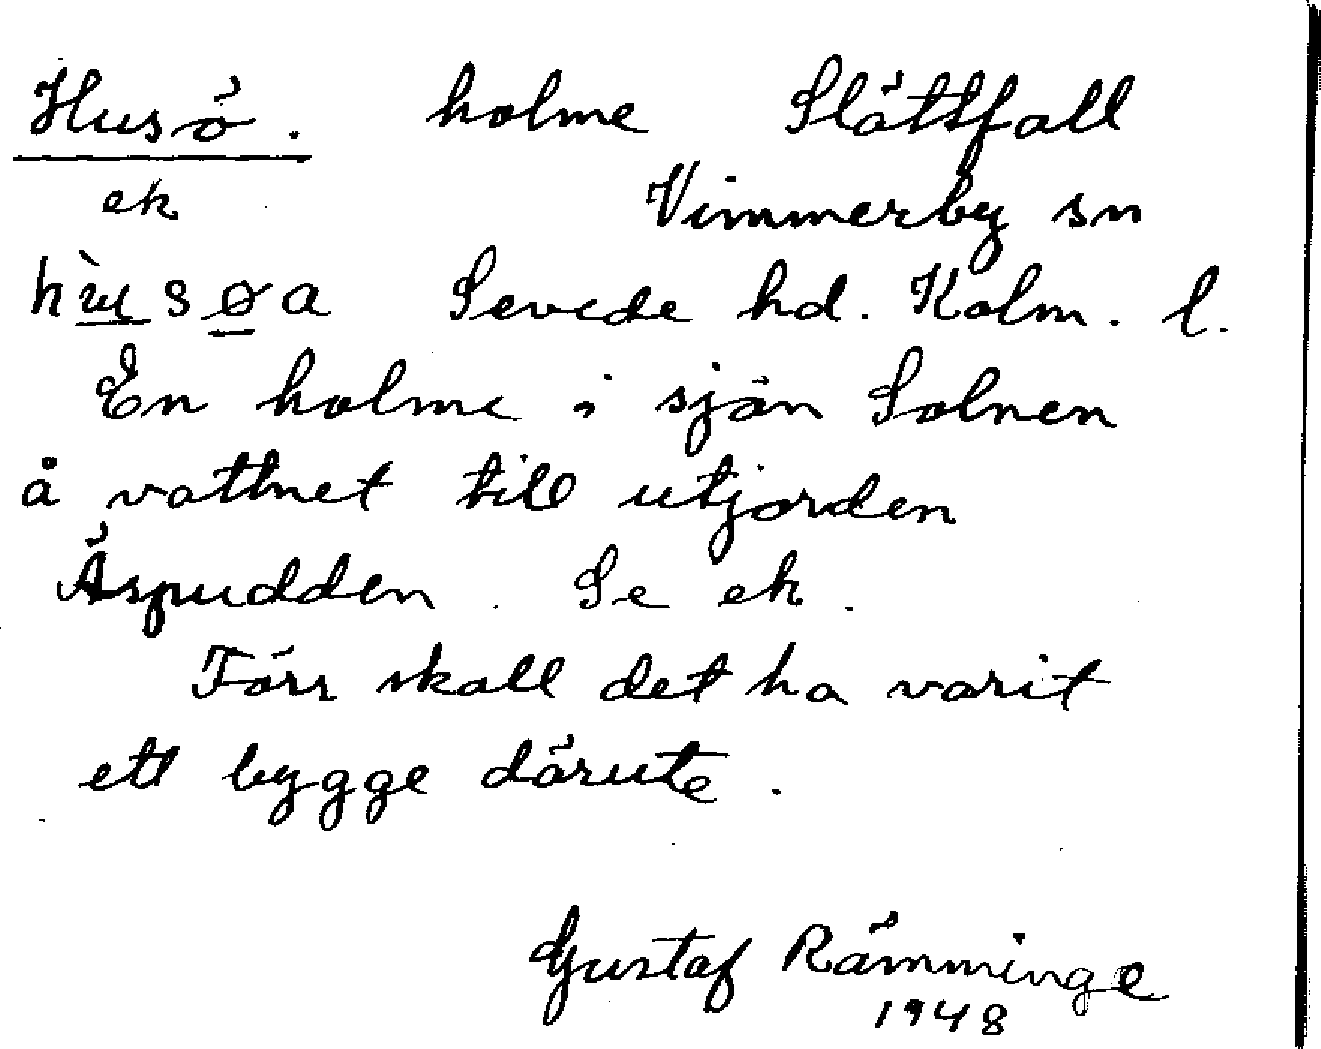 Husö. holme Slättfall
ek Vimmerby sn
hùsøa Sevede hd. Kalm. l.
En holme i sjön Solnen
å vattnet till utjorden
Äspudden. Se ek.
Förr skall det ha varit
ett bygge därute.
Gustaf Rämminge
1948